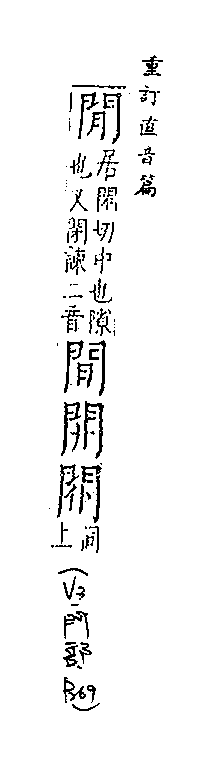 重訂直音篇
閒
居閑切中也隙
也又閑諫二音
間
同
上
(V3-門部 P.69)